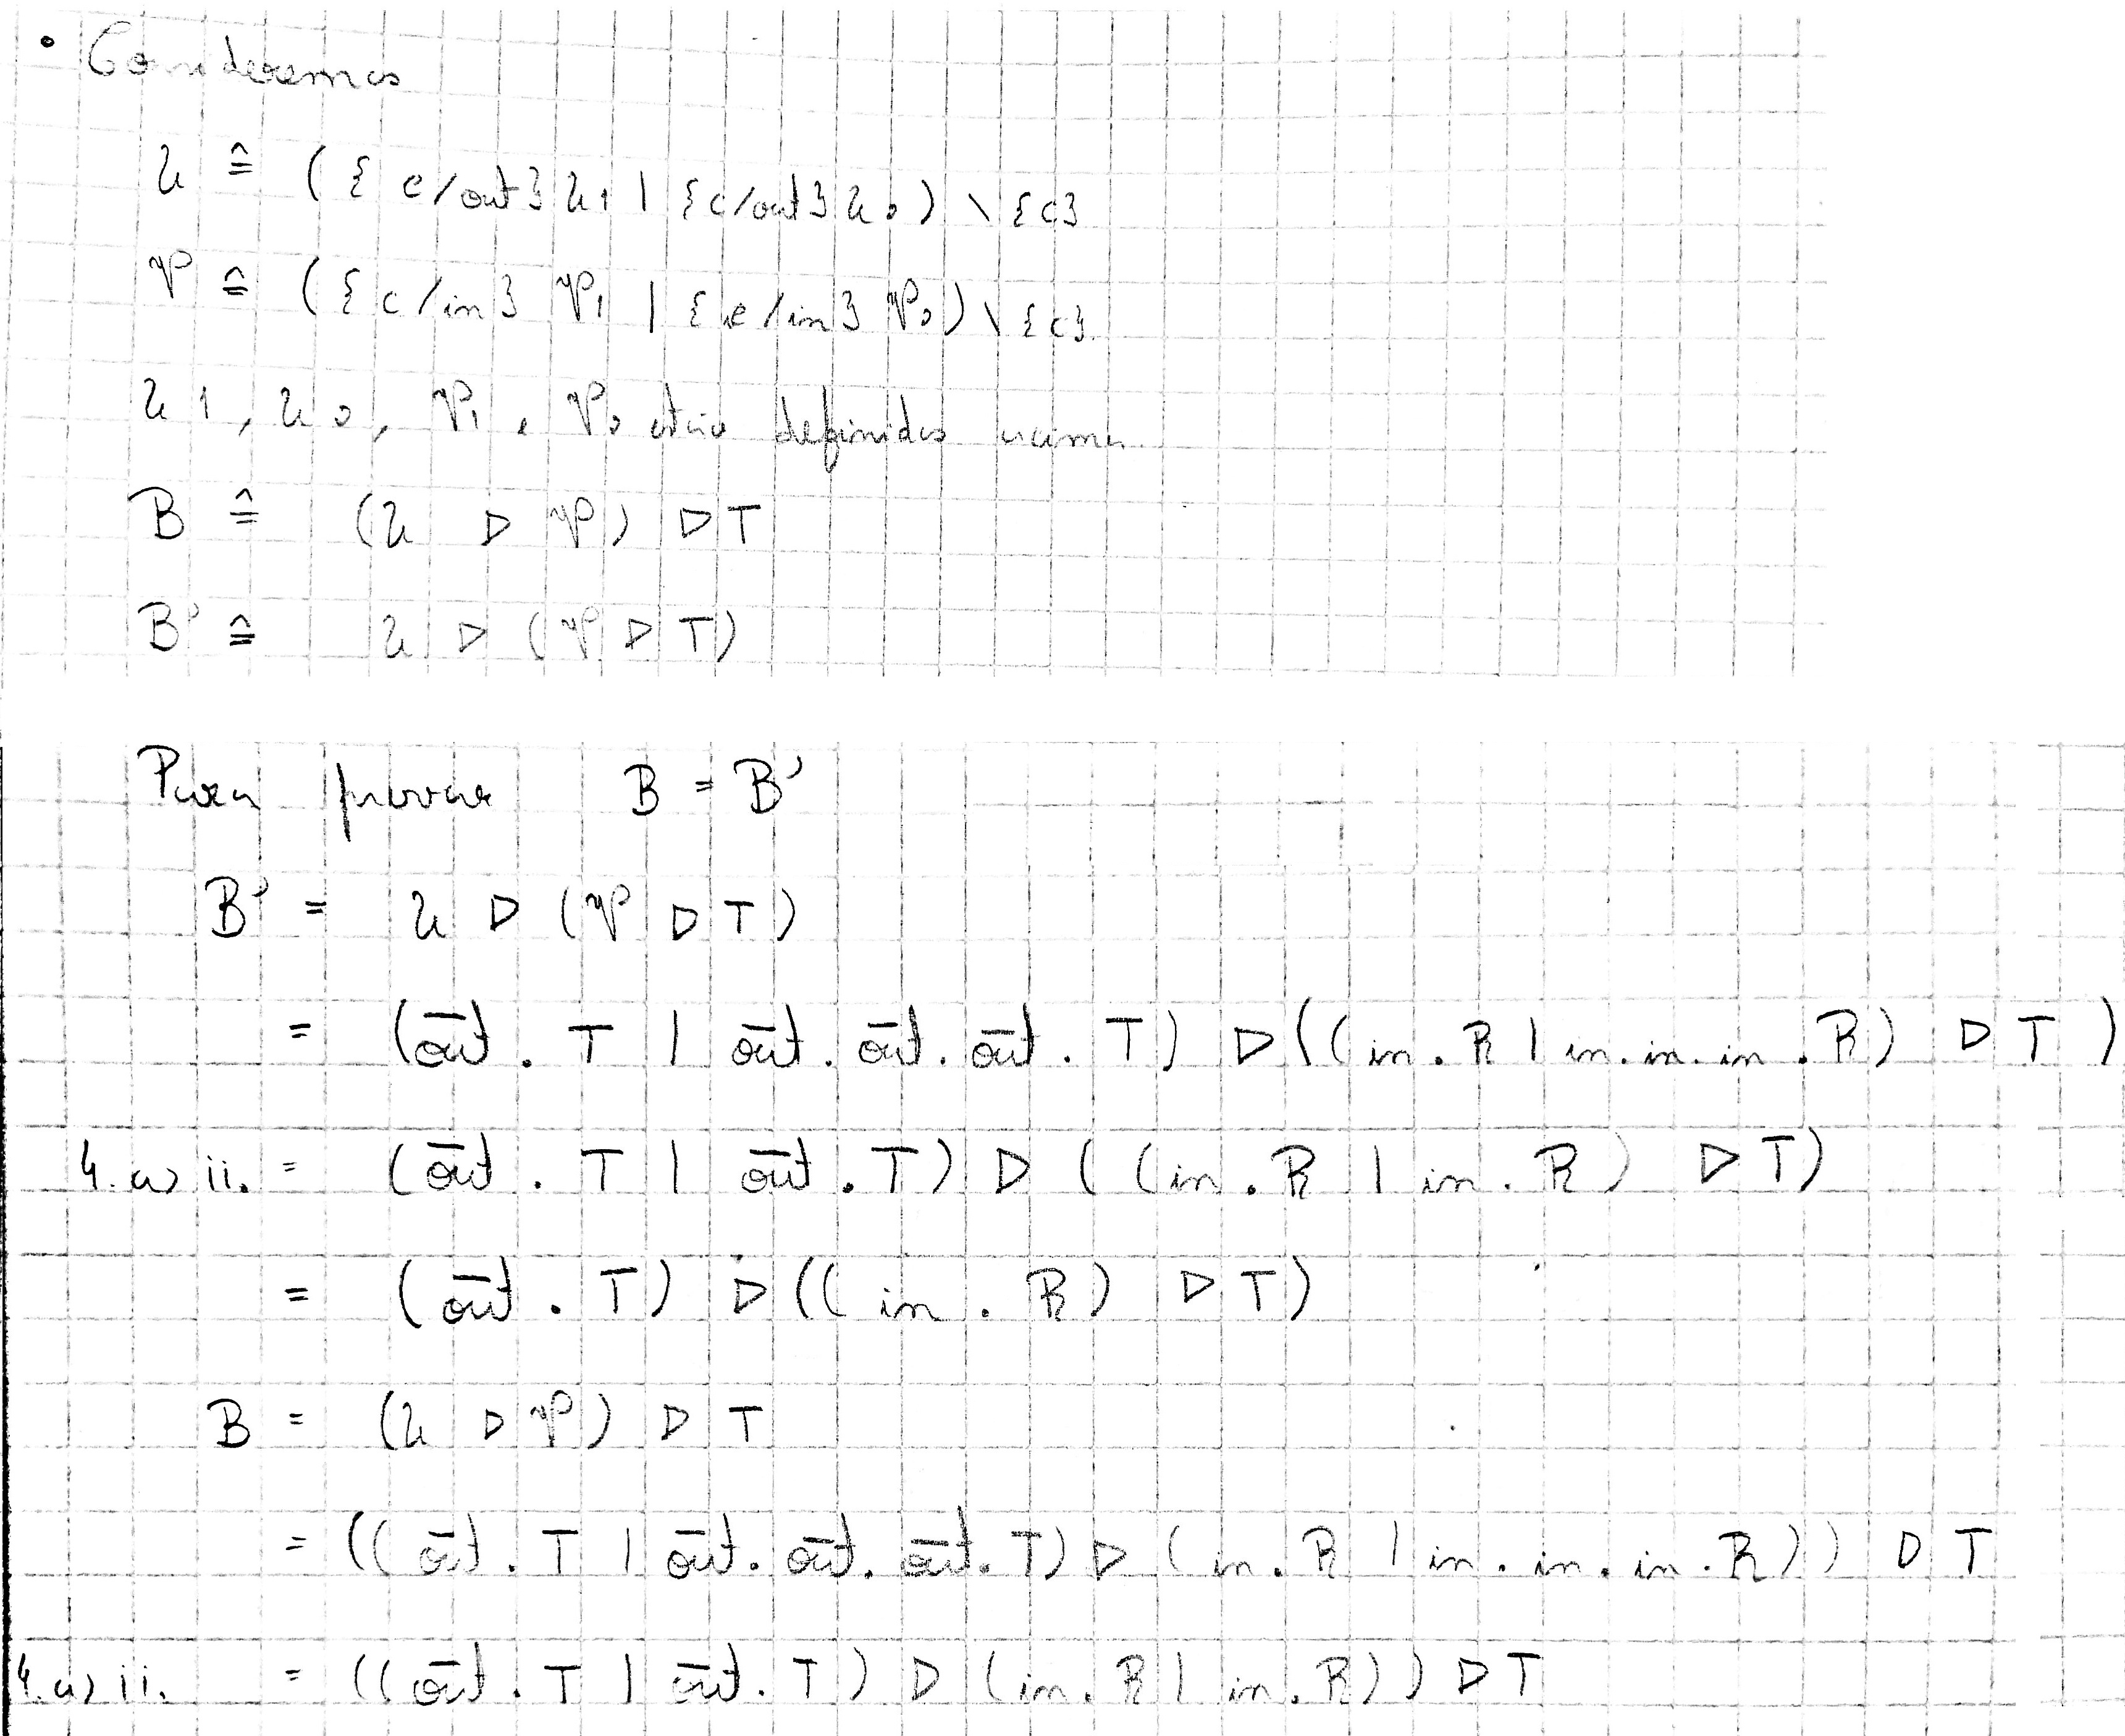 • Consideremos
U ≙ ({c/out} U1 | {c/out} U0) \ {c}
V ≙ ({c/in} V1 | {c/in} V0) \ {c}
U1, U0, V1 e V0 estão definidos acima
B ≙ (U ▷ V) ▷ T
B' ≙ U ▷ (V ▷ T)
Para provar B = B'
B' = U ▷ (V ▷ T)
= (o̅u̅t̅ . T | o̅u̅t̅ . o̅u̅t̅ . o̅u̅t̅ . T) ▷ ((in . R | in . in . in . R) ▷ T)
4. a) ii. = (o̅u̅t̅ . T | o̅u̅t̅ . T) ▷ ((in . R | in . R) ▷ T)
= (o̅u̅t̅ . T) ▷ ((in . R) ▷ T)
B = (U ▷ V) ▷ T
= ((o̅u̅t̅ . T | o̅u̅t̅ . o̅u̅t̅ . o̅u̅t̅ . T) ▷ (in . R | in . in . in . R)) ▷ T
4. a) ii. = ((o̅u̅t̅ . T | o̅u̅t̅ . T) ▷ (in . R | in . R)) ▷ T